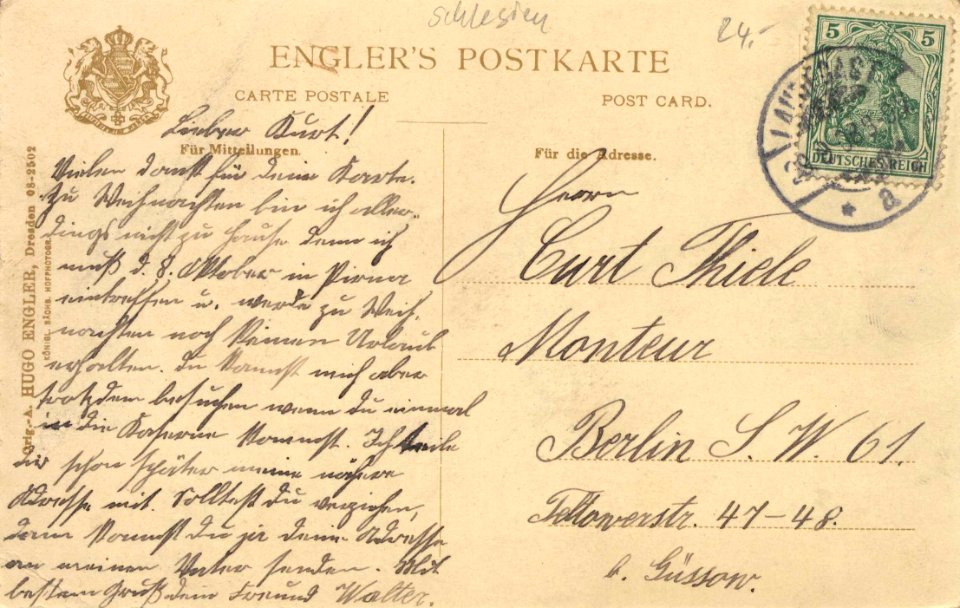 Schlesien
24.-
ENGLER'S POSTKARTE
CARTE POSTALE
POST CARD.
Für Mitteilungen.
Für die Adresse.
Orig.-A. HUGO ENGLER, Dresden 08-2502
KÖNIGL. SÄCHS. HOFPHOTOGR.
5 5
DEUTSCHES REICH
a
Lieber Kurt!
Vielen Dank für deine Karte.
Zu Weihnachten bin ich aller-
dings nicht zu Hause denn ich
muß d. 8. Oktober in Pirna
eintreffen u. werde zu Weih-
nachten noch keinen Urlaub
erhalten. Du kannst mich aber
trotzdem besuchen wenn du einmal
in die Kaserne kommst. Ich teile
dir schon später meine nähere
Adresse mit. Solltest du verziehen,
dann kannst du ja deine Adresse
an meinen Vater senden. Mit
bestem Gruß dein Freund Walter.
Herrn
Curt Thiele
Monteur
Berlin S. W. 61.
Teltowerstr. 47-48.
b. Güssow.